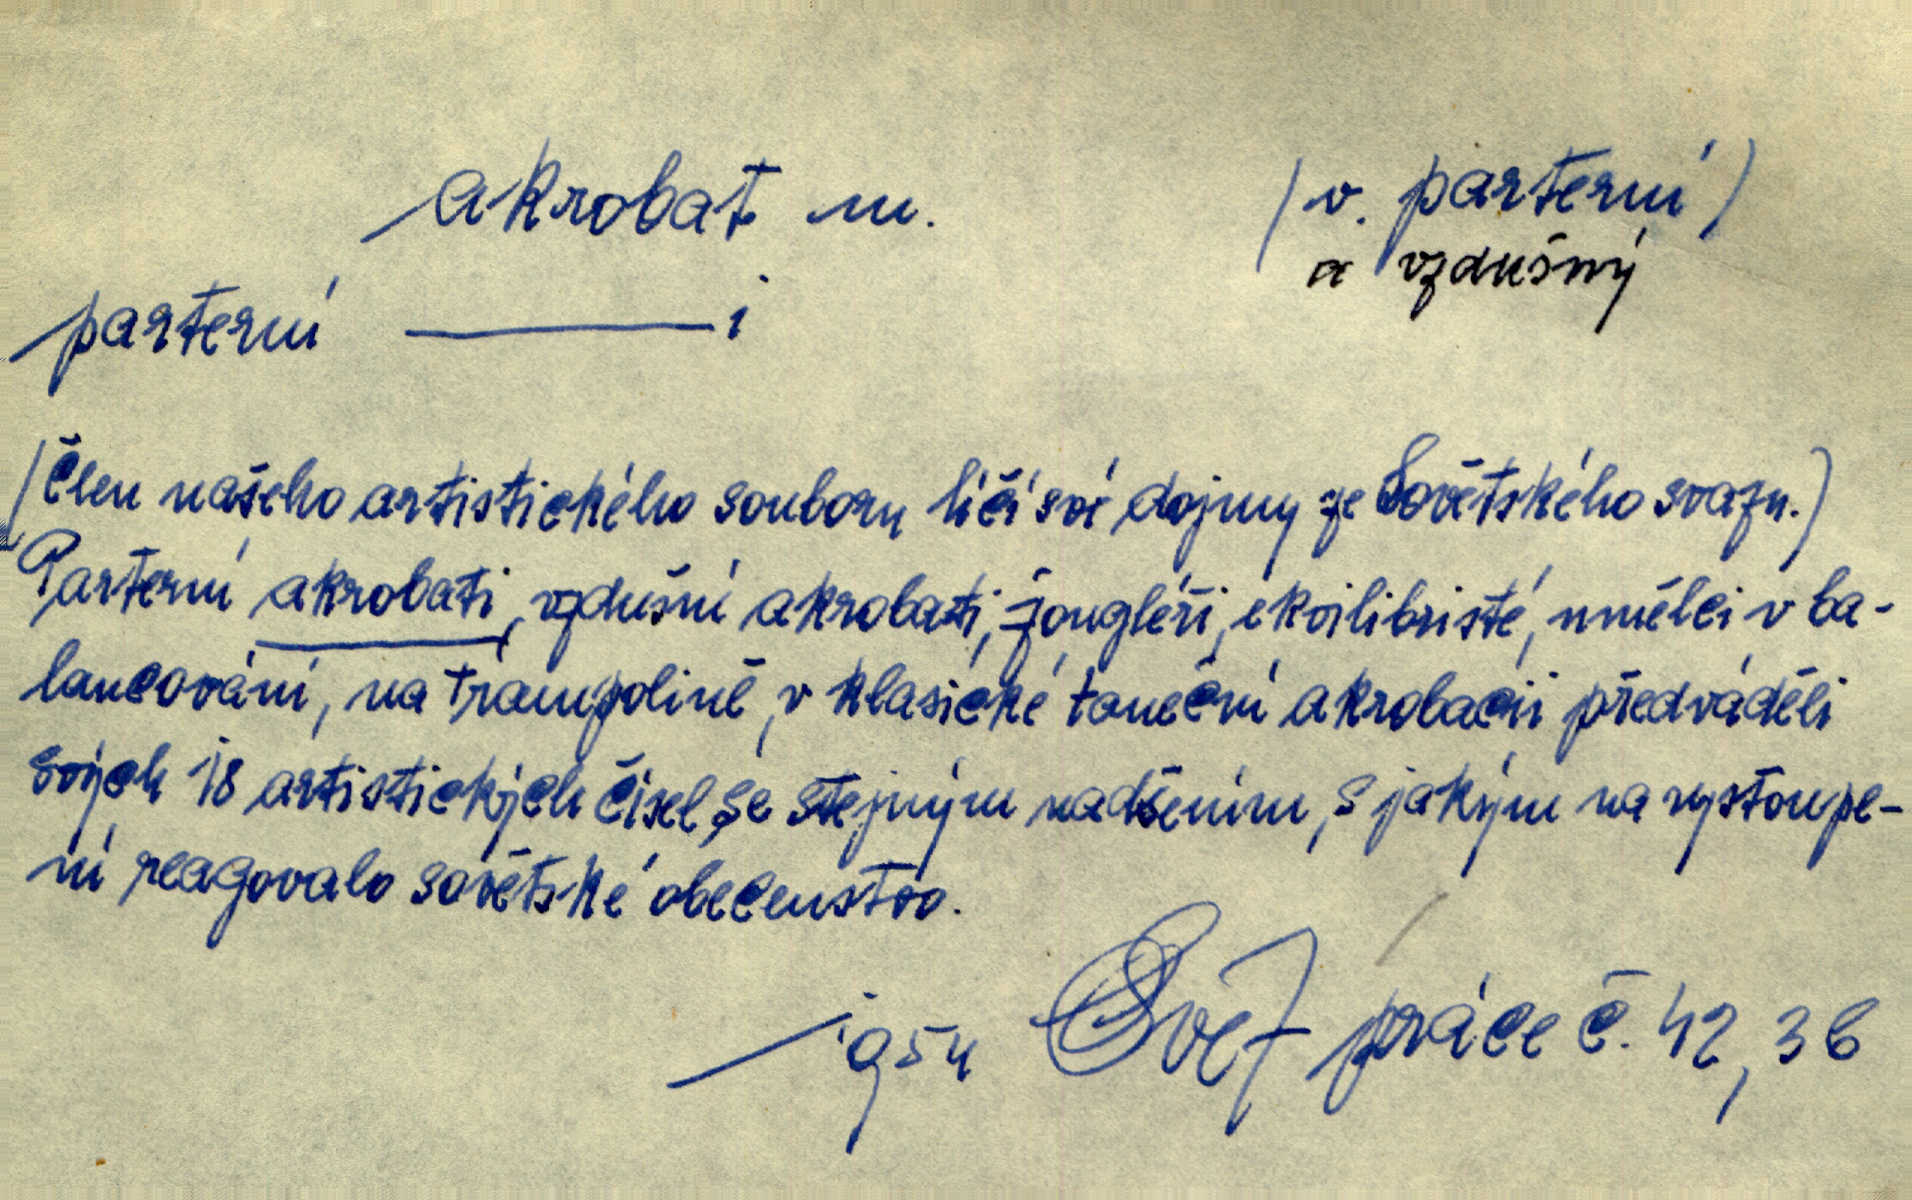 akrobat m. (v. parterní)
a vzdušný
parterní ———i
(Člen našeho artistického souboru líčí své dojmy ze Sovětského svazu.)
Parterní akrobati, vzdušní akrobati, žongléři, ekvilibristé, umělci v ba-
lancování, na trampolině, v klasické taneční akrobacii předváděli
svých 18 artistických čísel se stejným nadšením, s jakým na vystoupe-
ní reagovalo sovětské obecenstvo.
Svět práce č. 42, 36